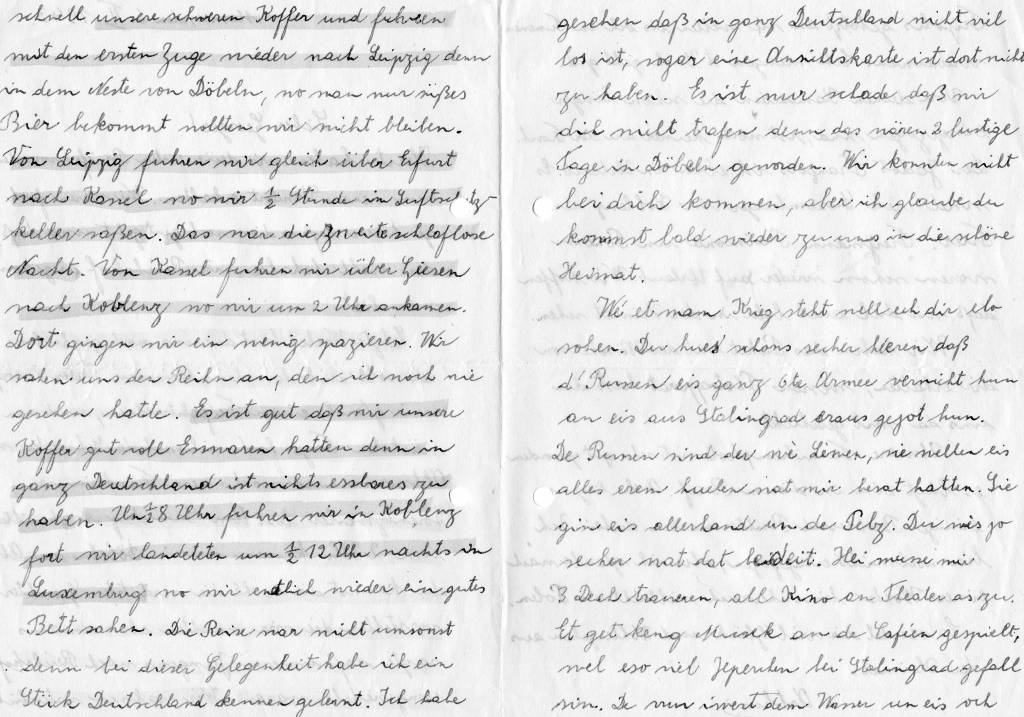 schnell unsere schweren Koffer und fuhren
mit den ersten Zuge wieder nach Leipzig denn
in dem Neste von Döbeln, wo man nur süßes
Bier bekommt wollten wir nicht bleiben.
Von Leipzig fuhren wir gleich über Erfurt
nach Kassel wo wir ½ Stunde im Luftschutz-
keller saßen. Das war die zweite schlaflose
Nacht. Von Kassel fuhren wir über Giesen
nach Koblenz wo wir um 2 Uhr ankamen.
Dort gingen wir ein wenig spazieren. Wir
sahen uns den Reihn an, den ich noch nie
gesehen hatte. Es ist gut daß wir unsere
Koffer gut voll Esswaren hatten denn in
ganz Deutschland ist nichts essbares zu
haben. Um ½8 Uhr fuhren wir in Koblenz
fort wir landeten um ½ 12 Uhr nachts in
Luxemburg wo wir endlich wieder ein gutes
Bett sahen. Die Reise war nicht umsonst
denn bei dieser Gelegenheit habe ich ein
Stück Deutschland kennen gelernt. Ich habe
gesehen daß in ganz Deutschland nicht viel
los ist, sogar eine Ansichtskarte ist dort nicht
zu haben. Es ist nur schade daß wir
dich nicht trafen denn das wären 2 lustige
Tage in Döbeln geworden. Wir konnten nicht
bei dich kommen, aber ich glaube du
kommst bald wieder zu uns in die schöne
Heimat.
Wei et mam Krieg steht well ech dir elo
sohen. Du hues schons secher hieren daß
d'Russen eis ganz 6te Armee vernicht hun
an eis aus Stalingrad eraus gejot hun.
De Russen sind der wéi Léiwen, sie wellen eis
alles erem huelen wat mir besat hatten. Sie
gin eis allerhand un de Pelz. Du wes jo
secher wat dat bedeit. Hei musse mir
3 Dech traueren, all Kino an Theater as zu.
Et get keng Musek an de Caféen gespielt,
wel eso viel Jeperten bei Stalingrad gefall
sin. De vun iwert dem Wasser un eis och